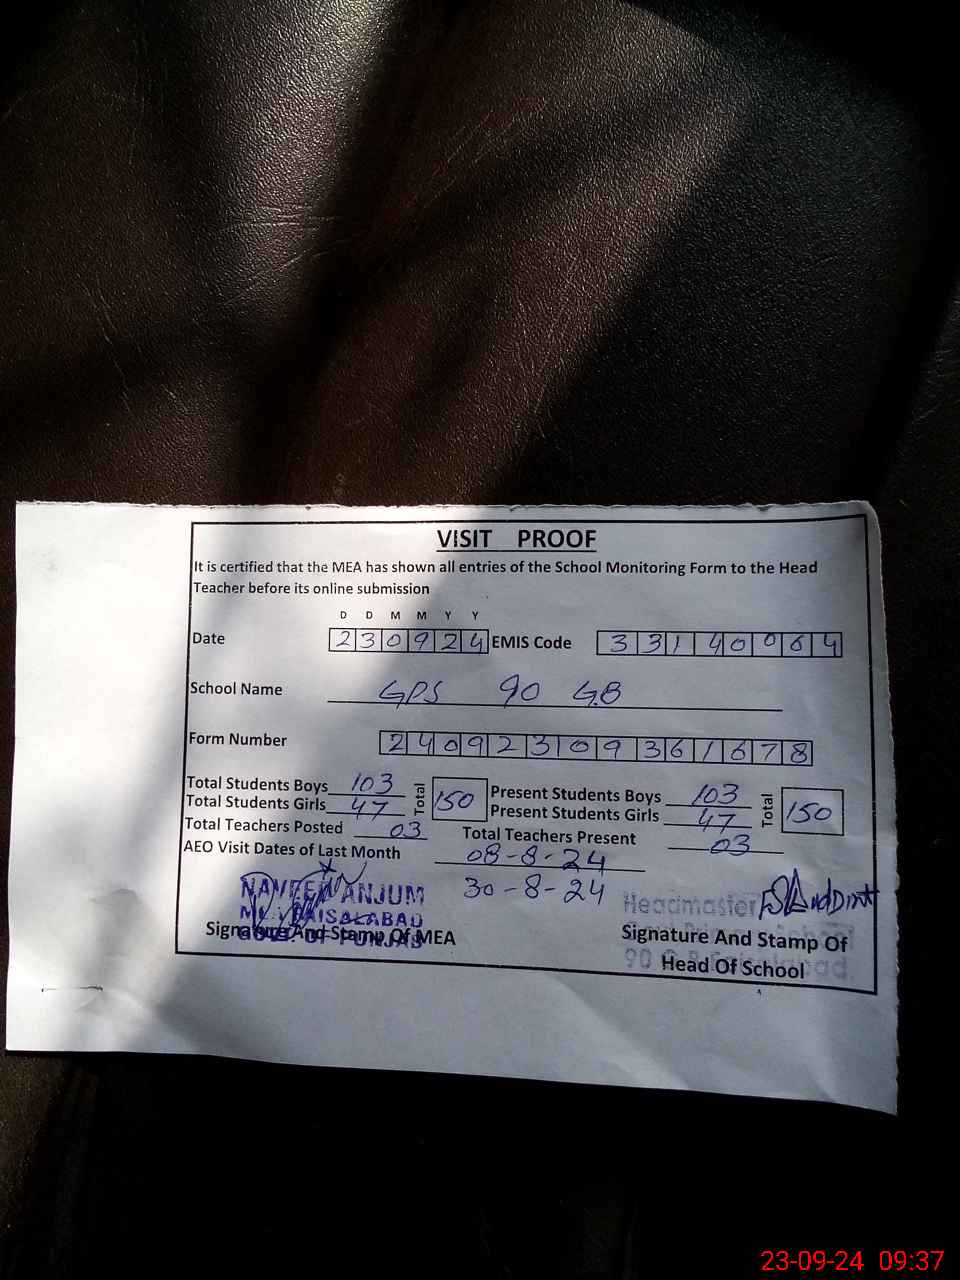 VISIT PROOF
It is certified that the MEA has shown all entries of the School Monitoring Form to the Head
Teacher before its online submission
D D M M Y Y
Date 230924 EMIS Code 33140064
School Name GPS 90 GB
Form Number 2409230936 1678
Total Students Boys 103 Total 150 Present Students Boys 103 Total 150
Total Students Girls 47 Present Students Girls 47
Total Teachers Posted 03 Total Teachers Present 03
AEO Visit Dates of Last Month 08-8-24
30-8-24
NAVEED ANJUM
FAISALABAD
GOVT. OF PUNJAB
Signature And Stamp Of MEA
Headmaster
School
90 G.B Faisalabad.
Signature And Stamp Of
Head Of School
23-09-24 09:37